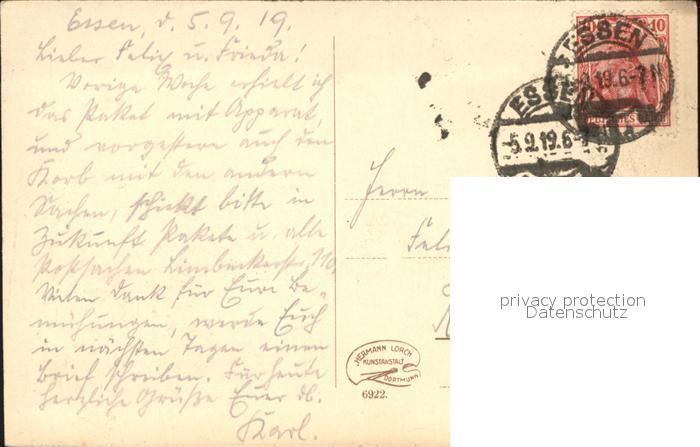 Essen, d. 5.9.19.
Lieber Felix u. Frieda!
Vorige Woche erhielt ich
das Paket mit Apparat,
und vorgestern auch den
Korb mit den andern
Sachen, schickt bitte in
Zukunft Pakete u. alle
Postsachen Limbeckerstr. 110,
Vielen Dank für Eure Be-
mühungen, werde Euch
in nächsten Tagen einen
Brief schreiben. Für heute
herzliche Grüße Euer lb.
Karl.
Herrn
ESSEN
5.9.19.6-7N
ESSEN
5.9.19.6-7
10
10
HERMANN LORCH
KUNSTANSTALT
DORTMUND
6922.
privacy protection
Datenschutz